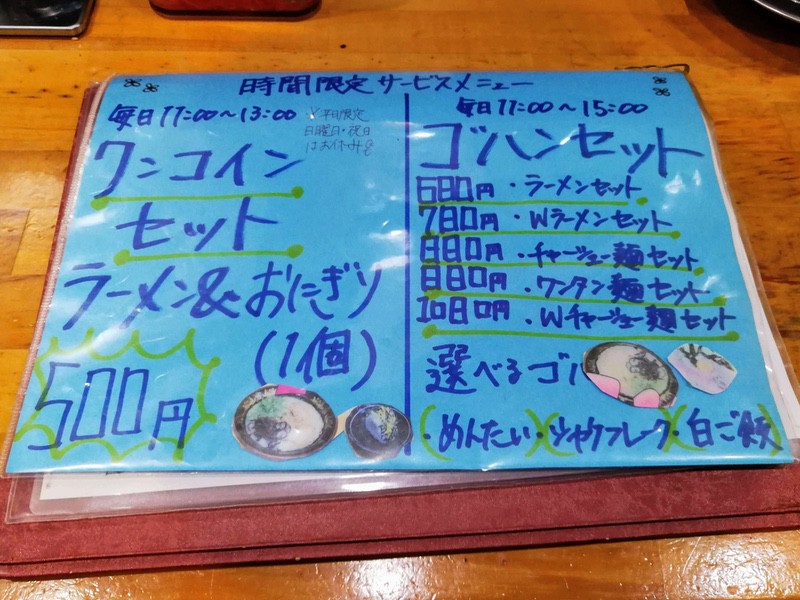 時間限定サービスメニュー
毎日11:00〜13:00
※平日限定
日曜日・祝日
はお休み
ワンコイン
セット
ラーメン&おにぎり
(1個)
500円
毎日11:00〜15:00
ゴハンセット
680円・ラーメンセット
780円・Wラーメンセット
880円・チャーシュー麺セット
880円・ワンタン麺セット
1080円・Wチャーシュー麺セット
選べるゴ
(・めんたい)(シャケフレーク)(・白ご飯)